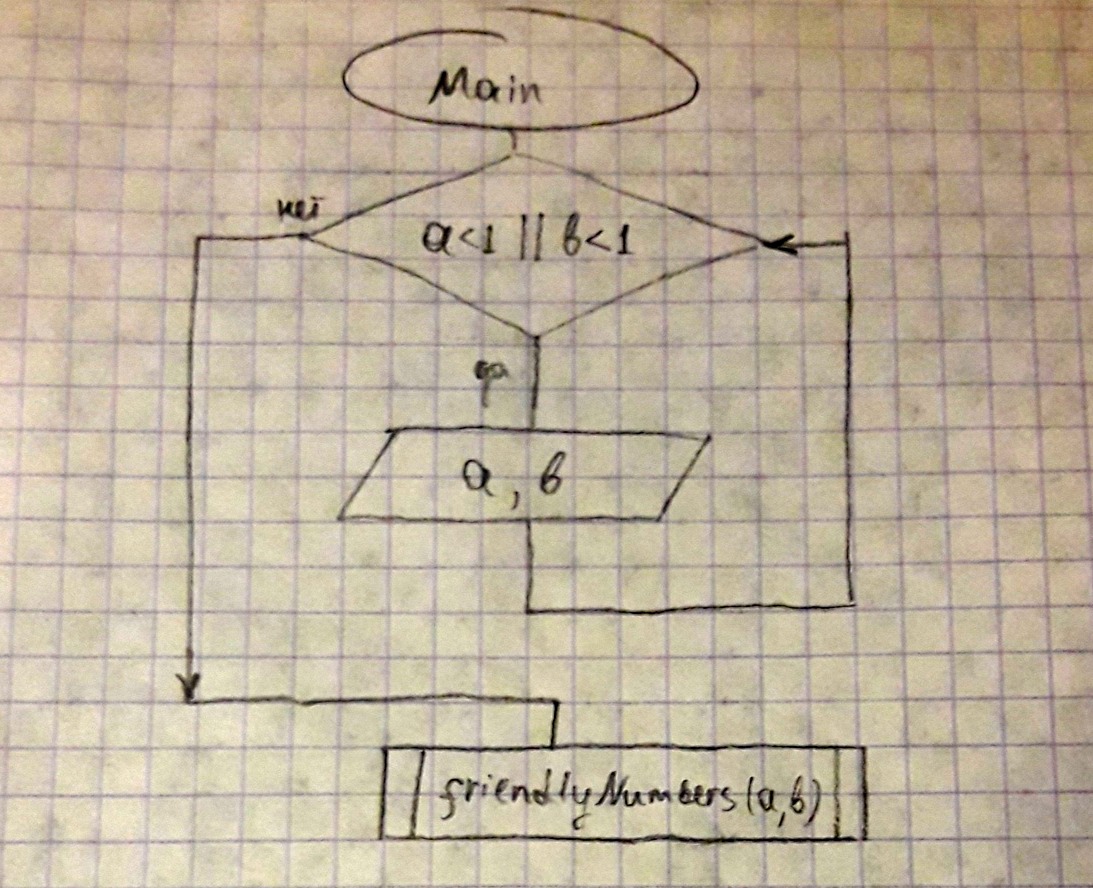 Main
нет
a<1 || b<1
да
a, b
friendlyNumbers(a,b)